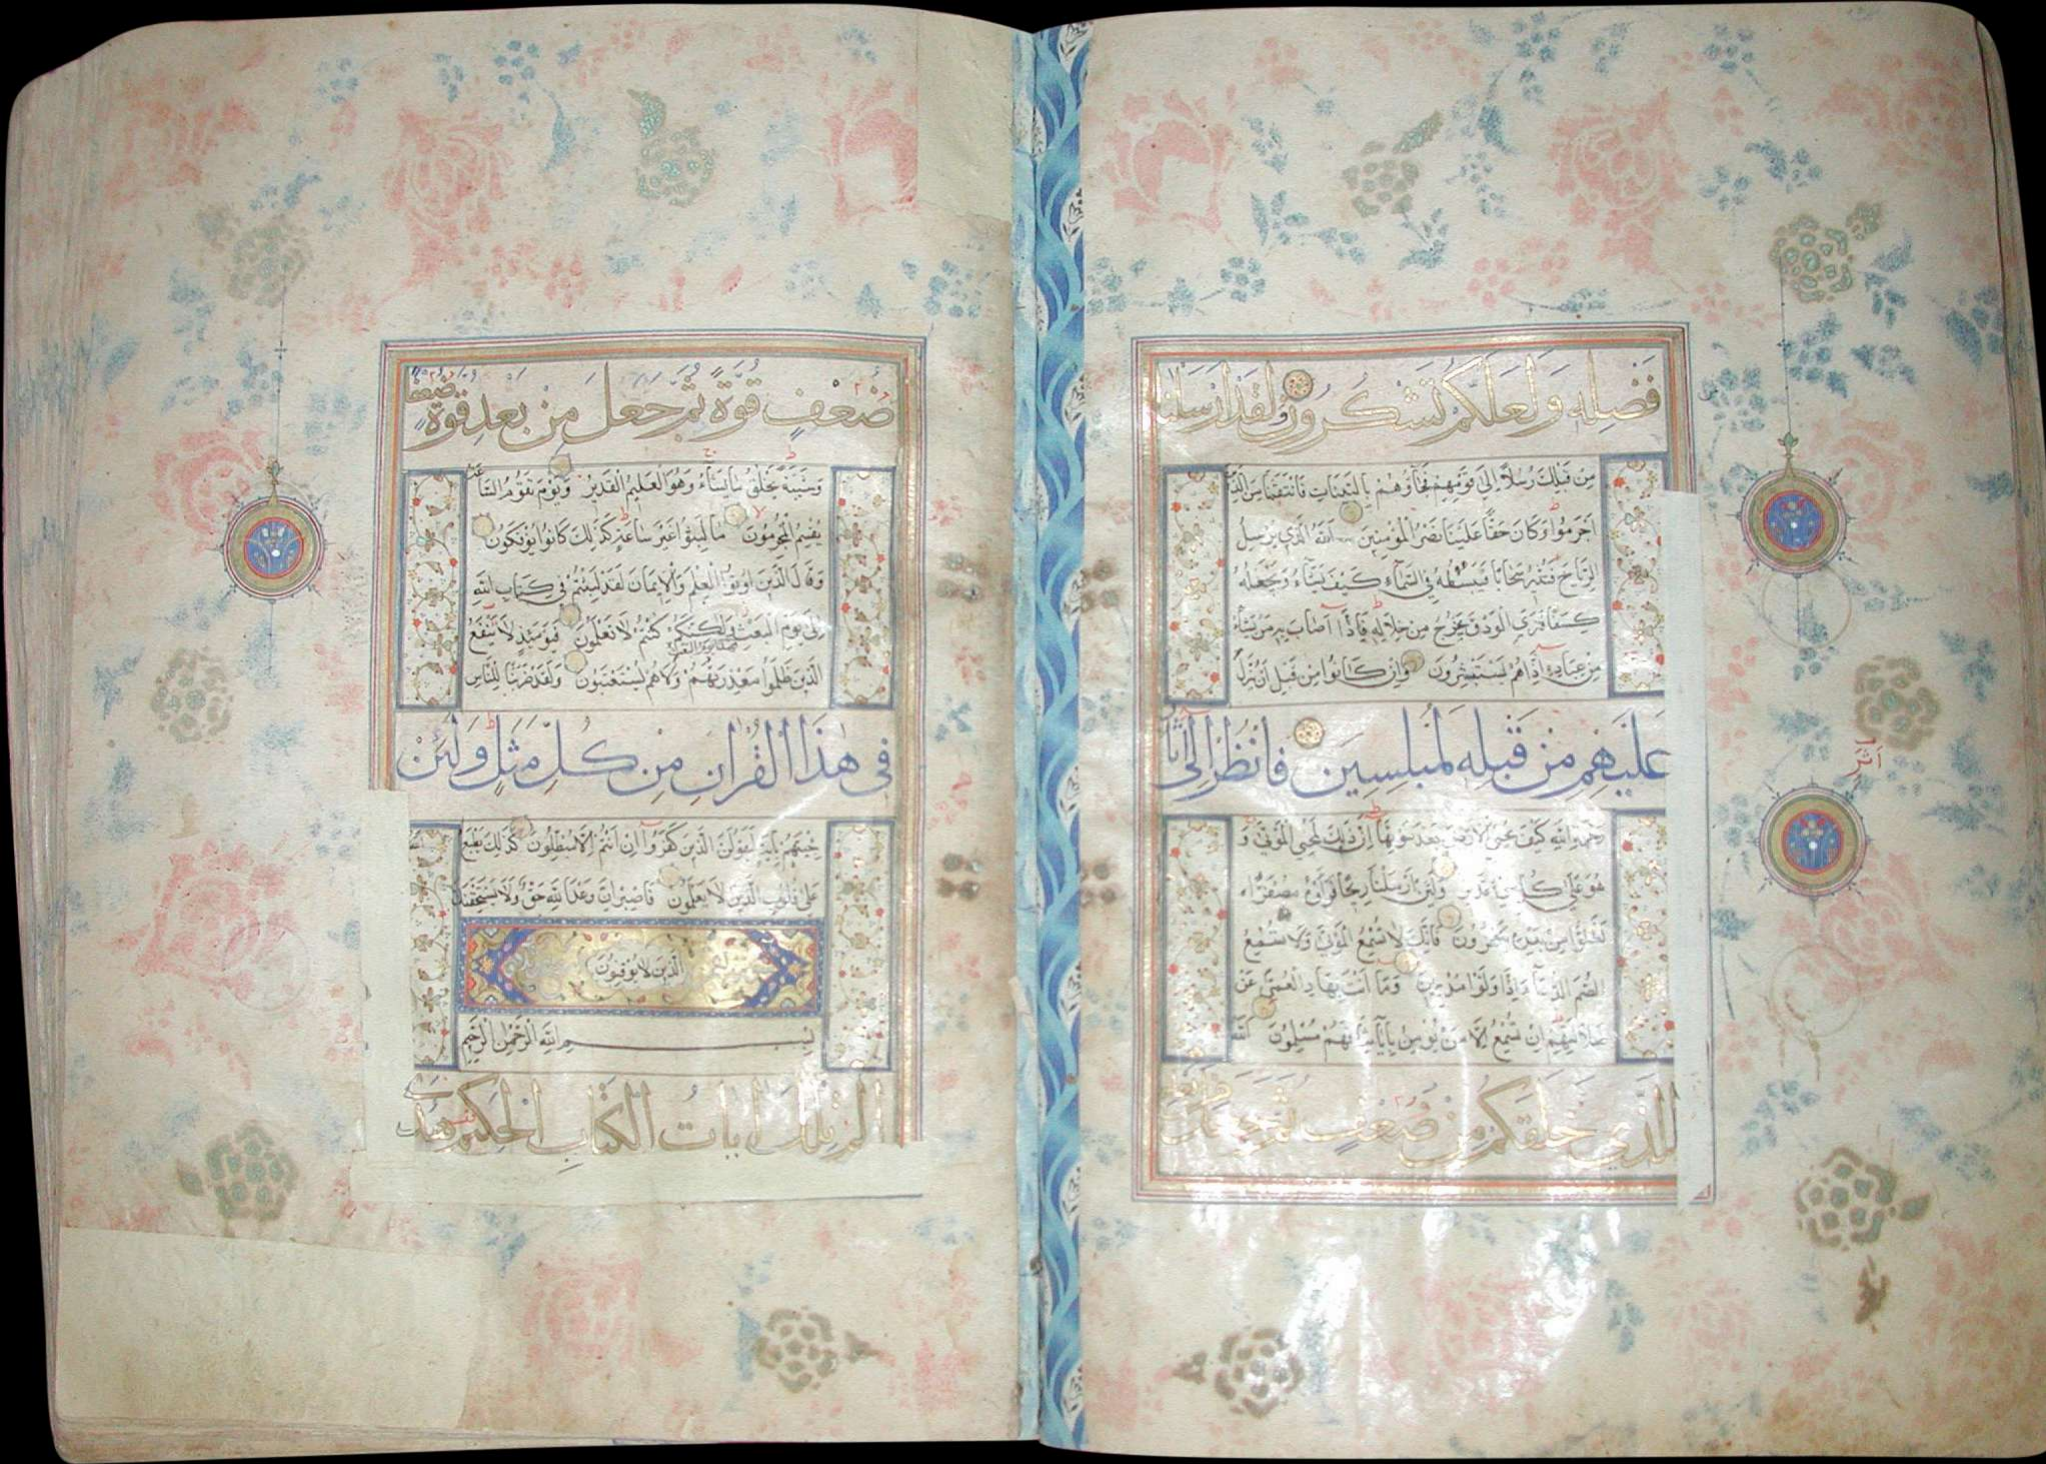 فَضْلِهِ وَلَعَلَّكُمْ تَشْكُرُونَ وَلَقَدْ اَرْسَلْنَا
مِنْ قَبْلِكَ رُسُلًا اِلَى قَوْمِهِمْ فَجَاؤُهُمْ بِالْبَيِّنَاتِ فَانْتَقَمْنَا مِنَ الَّذِينَ
اَجْرَمُوا وَكَانَ حَقًّا عَلَيْنَا نَصْرُ الْمُؤْمِنِينَ اللَّهُ الَّذِي يُرْسِلُ
الرِّيَاحَ فَتُثِيرُ سَحَابًا فَيَبْسُطُهُ فِي السَّمَاءِ كَيْفَ يَشَاءُ وَيَجْعَلُهُ
كِسَفًا فَتَرَى الْوَدْقَ يَخْرُجُ مِنْ خِلَالِهِ فَاِذَا اَصَابَ بِهِ مَنْ يَشَاءُ
مِنْ عِبَادِهِ اِذَا هُمْ يَسْتَبْشِرُونَ وَاِنْ كَانُوا مِنْ قَبْلِ اَنْ يُنَزَّلَ
عَلَيْهِمْ مِنْ قَبْلِهِ لَمُبْلِسِينَ فَانْظُرْ اِلَى اٰثَارِ
اَثَرِ
رَحْمَةِ اللَّهِ كَيْفَ يُحْيِي الْاَرْضَ بَعْدَ مَوْتِهَا اِنَّ ذٰلِكَ لَمُحْيِي الْمَوْتٰى وَ
هُوَ عَلٰى كُلِّ شَيْءٍ قَدِيرٌ وَلَئِنْ اَرْسَلْنَا رِيحًا فَرَاَوْهُ مُصْفَرًّا
لَظَلُّوا مِنْ بَعْدِهِ يَكْفُرُونَ فَاِنَّكَ لَا تُسْمِعُ الْمَوْتٰى وَلَا تُسْمِعُ
الصُّمَّ الدُّعَاءَ اِذَا وَلَّوْا مُدْبِرِينَ وَمَا اَنْتَ بِهَادِ الْعُمْيِ عَنْ
ضَلَالَتِهِمْ اِنْ تُسْمِعُ اِلَّا مَنْ يُؤْمِنُ بِاٰيَاتِنَا فَهُمْ مُسْلِمُونَ اللَّهُ
الَّذِي خَلَقَكُمْ مِنْ ضُعْفٍ ثُمَّ جَعَلَ
ضُعْفٍ قُوَّةً ثُمَّ جَعَلَ مِنْ بَعْدِ قُوَّةٍ ضُعْفًا
وَشَيْبَةً يَخْلُقُ مَا يَشَاءُ وَهُوَ الْعَلِيمُ الْقَدِيرُ وَيَوْمَ تَقُومُ السَّاعَةُ
يُقْسِمُ الْمُجْرِمُونَ مَا لَبِثُوا غَيْرَ سَاعَةٍ كَذٰلِكَ كَانُوا يُؤْفَكُونَ
وَقَالَ الَّذِينَ اُوتُوا الْعِلْمَ وَالْاِيمَانَ لَقَدْ لَبِثْتُمْ فِي كِتَابِ اللَّهِ
اِلٰى يَوْمِ الْبَعْثِ وَلٰكِنَّكُمْ كُنْتُمْ لَا تَعْلَمُونَ فَيَوْمَئِذٍ لَا يَنْفَعُ
الَّذِينَ ظَلَمُوا مَعْذِرَتُهُمْ وَلَا هُمْ يُسْتَعْتَبُونَ وَلَقَدْ ضَرَبْنَا لِلنَّاسِ
فِي هٰذَا الْقُرْاٰنِ مِنْ كُلِّ مَثَلٍ وَلَئِنْ
جِئْتَهُمْ بِاٰيَةٍ لَيَقُولَنَّ الَّذِينَ كَفَرُوا اِنْ اَنْتُمْ اِلَّا مُبْطِلُونَ كَذٰلِكَ يَطْبَعُ اللَّهُ
عَلٰى قُلُوبِ الَّذِينَ لَا يَعْلَمُونَ فَاصْبِرْ اِنَّ وَعْدَ اللَّهِ حَقٌّ وَلَا يَسْتَخِفَّنَّكَ
الَّذِينَ لَا يُوقِنُونَ
بِسْمِ اللَّهِ الرَّحْمٰنِ الرَّحِيمِ
الم تِلْكَ اٰيَاتُ الْكِتَابِ الْحَكِيمِ هُدًى